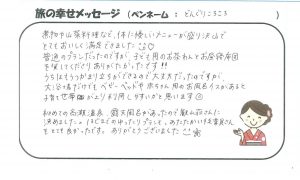 旅の幸せメッセージ (ペンネーム : どんぐりころころ )
煮物や山菜料理など、体に優しいメニューが盛り沢山で
とてもおいしく満足できました
普通のプランだったのですが、子ども用のお茶わんとお子様座席
を用意してくださりありがたかったです!!
うちはもうつかまり立ちができるので大丈夫だったのですが、
大浴場だけでも ベビーベッドや 赤ちゃん用のお風呂イスがあると
子育て世帯 がより利用しやすいかと思います
初めての 湯温泉、露天風呂があったので 山荘さんに
決めました。 ほどよくのんびりプランで、あたたかい従業員さん
もとても良かったです。 ありがとうございました